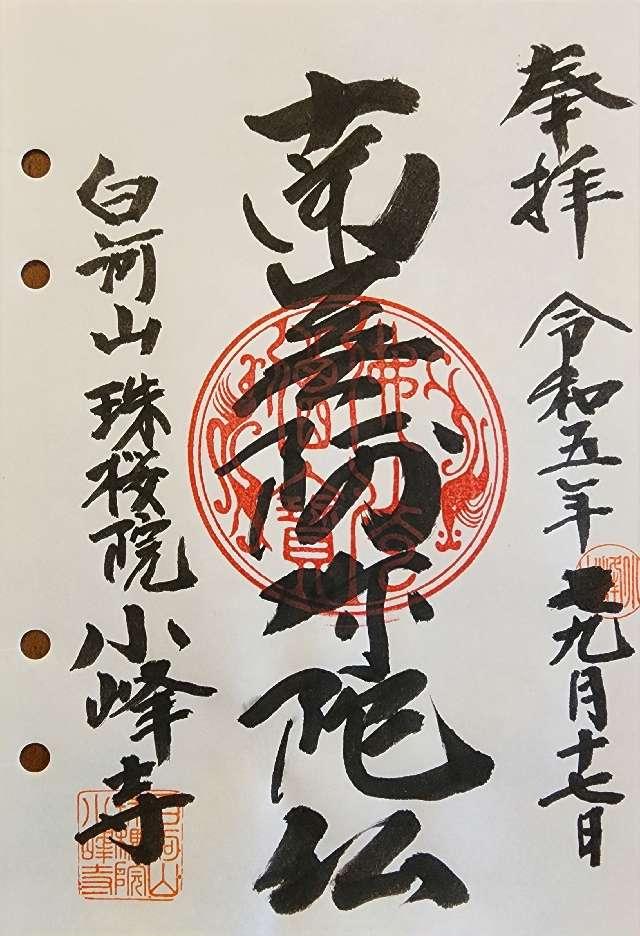 奉拝
令和五年九月十七日
南無阿弥陀仏
白河山 珠桜院 小峰寺
佛法僧寶
白河山珠桜院小峰寺